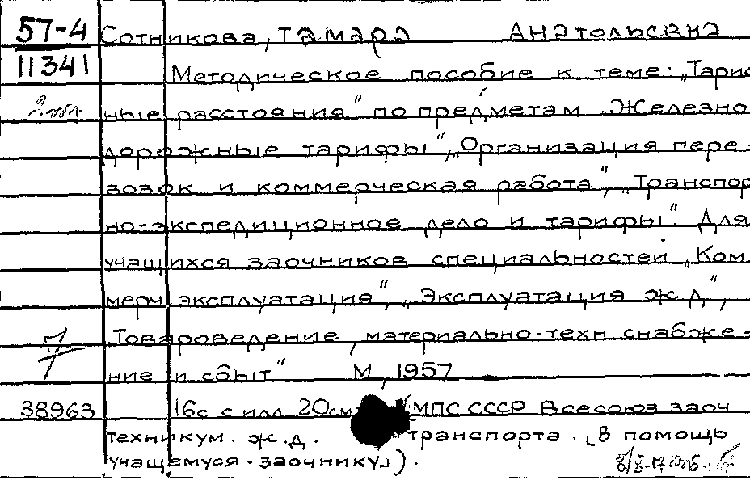 57-4 Сотникова, Тамара Анатольевна
11341 Методическое пособие к теме: „Тариф
ные расстояния" по предметам „Железно
дорожные тарифы", „Организация пере-
возок и коммерческая работа", „Транспор
но-экспедиционное дело и тарифы". Для
учащихся заочников специальностей „Ком
мерч эксплуатация", „Эксплуатация ж.д",
Товароведение, материально-техн снабже-
ние и сбыт" М, 1957
38963 16с с илл 20см МПС СССР Всесоюз заоч
техникум. ж.д. транспорта. (В помощь
учащемуся-заочнику).